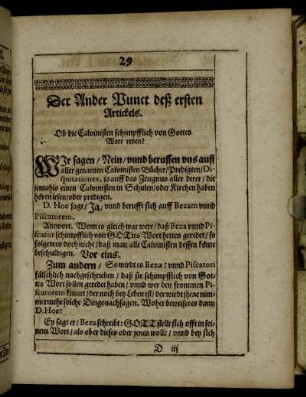 29
Der Ander Punct deß ersten
Artickels.
Ob die Calvinisten schimpfflich von Gottes
Wort reden?
WIr sagen / Nein / vnnd beruffen vns auff
aller genanten Calvinisten Bücher / Predigten / Di-
sputationes, ja auff das Zeugnus aller derer / die
jemahls einen Calvinisten in Schulen / oder Kirchen haben
hören lesen / oder predigen.
D. Hoe sagt / Ja, vnnd berufft sich auff Bezam vnnd
Piscatorem.
Antwort. Wenn es gleich war wer / daß Beza vnnd Pis-
cator schimpfflich von GOttes Wort hetten geredet / so
folget es doch nicht / daß man alle Calvinisten dessen könte
beschuldigen. Vor eins.
Zum andern / So würd es Beza / vnnd Piscatori
fälschlich nachgeschrieben / daß sie schimpfflich von Got-
tes Wort sollen geredet haben / vnnd wer den frommen Pi-
scatorem kennet / der noch bey Leben ist / der würdt ihme nim-
mermehr solche Ding nachsagen. Woher beweist es dann
D. Hoe?
Ey sagt er / Beza schreibt: GOTT stelle sich offt in sei-
nem Wort / als ober dieses oder jenes wolle / vnnd bey sich
D iij